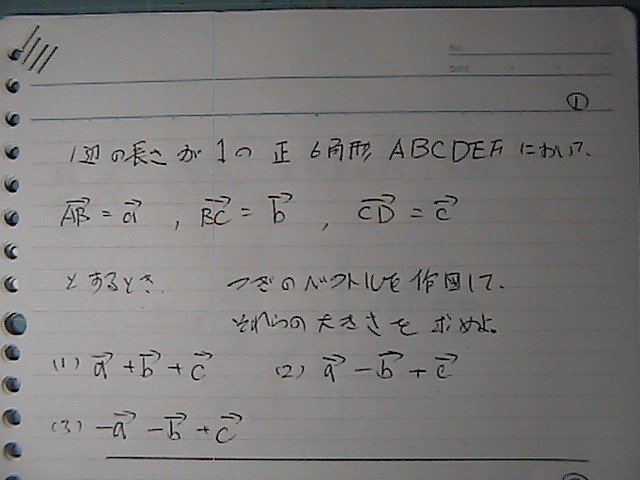 No.
DATE
①
1辺の長さが1の 正6角形 ABCDEFにおいて、
$\overrightarrow{AB} = \vec{a}$ , $\overrightarrow{BC} = \vec{b}$ , $\overrightarrow{CD} = \vec{c}$
とするとき、 つぎのベクトルを作図して、
それらの大きさを求めよ。
(1) $\vec{a} + \vec{b} + \vec{c}$ (2) $\vec{a} - \vec{b} + \vec{c}$
(3) $-\vec{a} - \vec{b} + \vec{c}$